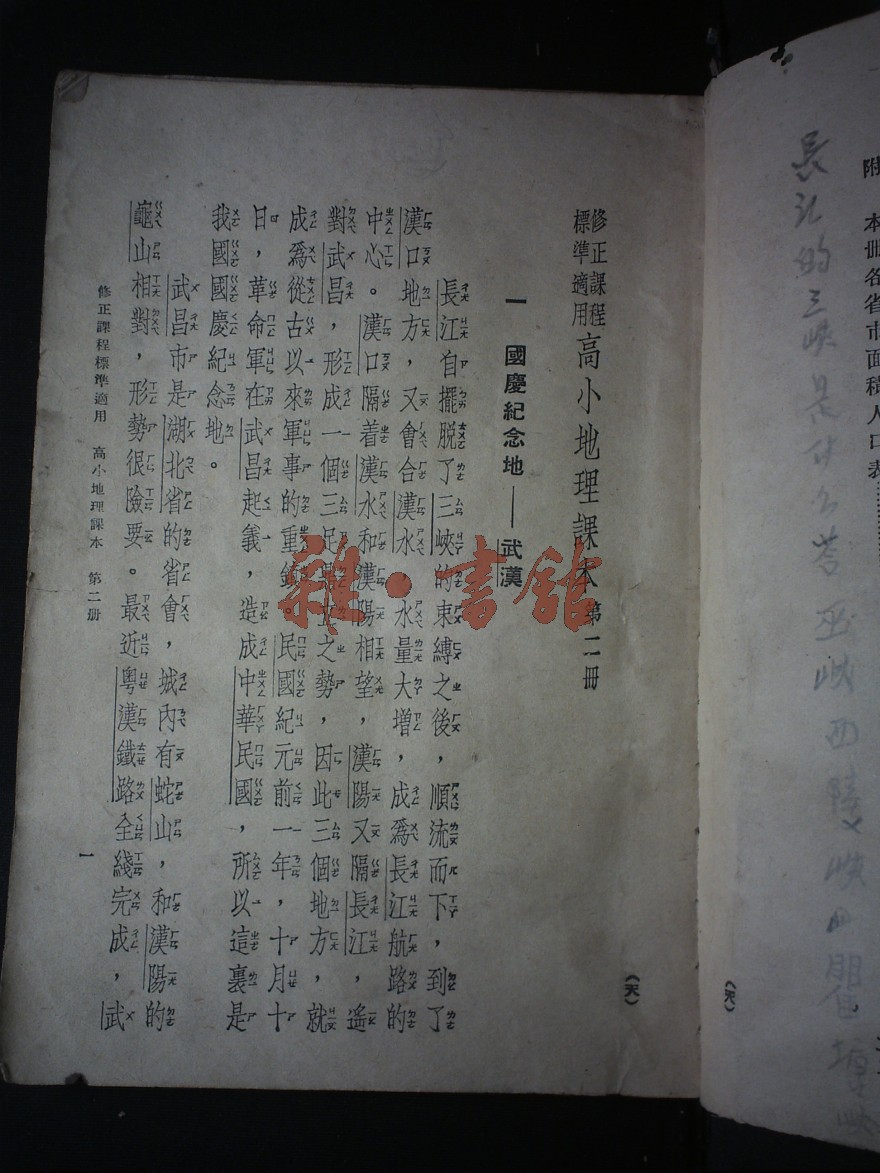 附 本册各省市面積人口表
長江的三峽是什么 答 巫峽 西陵峽
(天)
修正課程標準適用 高小地理課本 第二册
(天)
一 國慶紀念地——武漢
長江自擺脫了三峽的束縛之後，順流而下，到了
漢口地方，又會合漢水，水量大增，成爲長江航路的
中心。漢口隔着漢水和漢陽相望，漢陽又隔長江，遙
對武昌，形成一個三足鼎立之勢，因此三個地方，就
成爲從古以來軍事的重鎮。民國紀元前一年，十月十
日，革命軍在武昌起義，造成中華民國，所以這裏是
我國國慶紀念地。
武昌市是湖北省的省會，城內有蛇山，和漢陽的
龜山相對，形勢很險要。最近粵漢鐵路全綫完成，武
修正課程標準適用 高小地理課本 第二册
一
雜·書館